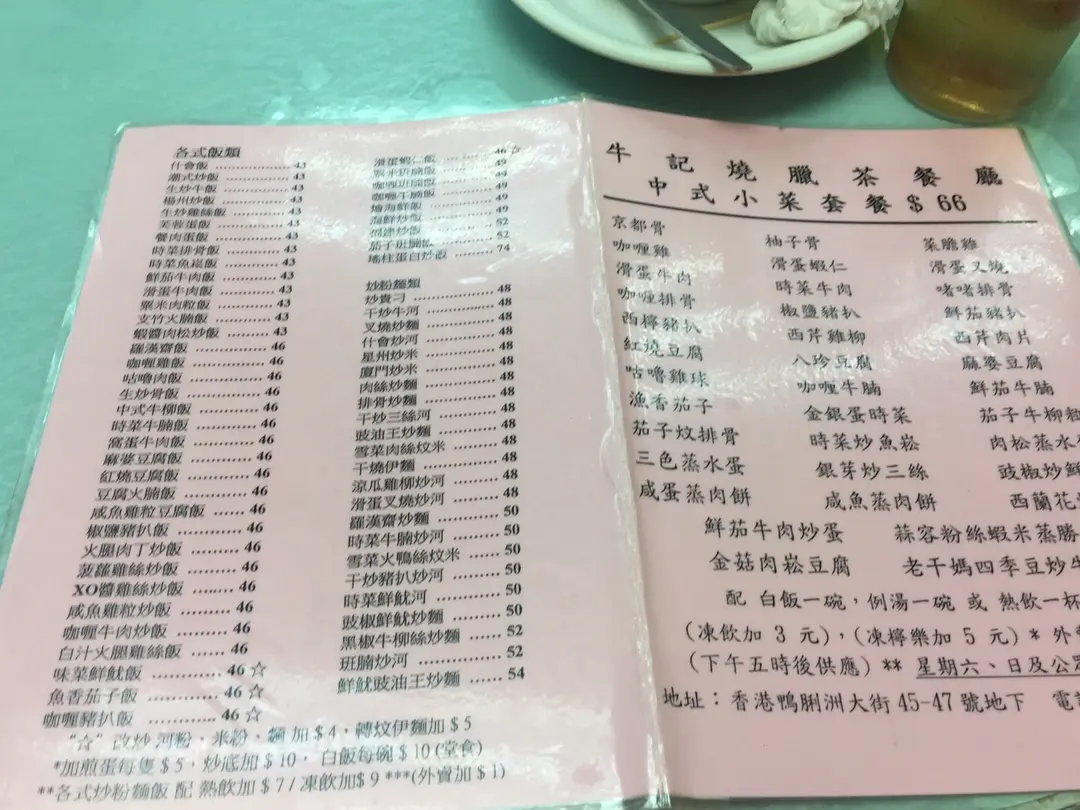 各式飯類
什會飯 ................ 43
潮式炒飯 ................ 43
生炒牛飯 ................ 43
楊州炒飯 ................ 43
生炒雞絲飯 ................ 43
芙蓉蛋飯 ................ 43
餐肉蛋飯 ................ 43
時菜排骨飯 ................ 43
時菜魚崧飯 ................ 43
鮮茄牛肉飯 ................ 43
滑蛋牛肉飯 ................ 43
粟米肉粒飯 ................ 43
支竹火腩飯 ................ 43
蝦醬肉松炒飯 ............. 43
羅漢齋飯 ................ 46
咖喱雞飯 ................ 46
咕嚕肉飯 ................ 46
生炒骨飯 ................ 46
中式牛柳飯 ............. 46
時菜牛腩飯 ............. 46
窩蛋牛肉飯 ............. 46
麻婆豆腐飯 ............. 46
紅燒豆腐飯 ............. 46
豆腐火腩飯 ............. 46
咸魚雞粒豆腐飯 ...... 46
椒鹽豬扒飯 ............. 46
火腿肉丁炒飯 .......... 46
菠蘿雞絲炒飯 .......... 46
XO醬雞絲炒飯 ......... 46
咸魚雞粒炒飯 .......... 46
咖喱牛肉炒飯 .......... 46
白汁火腿雞絲飯 ...... 46
味菜鮮魷飯 ............. 46 ☆
魚香茄子飯 ............. 46 ☆
咖喱豬扒飯 ............. 46 ☆
滑蛋蝦仁飯 ........ 46 ☆
粟米班腩飯 ........ 49
咖喱班腩飯 ........ 49
咖喱牛腩飯 ........ 49
燴海鮮飯 ........ 49
海鮮炒飯 ........ 52
福建炒飯 ........ 52
茄子班腩飯 ........ 52
瑤柱蛋白炒飯 ........ 74
炒粉麵類
炒貴刁 ................ 48
干炒牛河 ................ 48
叉燒炒麵 ................ 48
什會炒河 ................ 48
星州炒米 ................ 48
廈門炒米 ................ 48
肉絲炒麵 ................ 48
排骨炒麵 ................ 48
干炒三絲河 ............. 48
豉油王炒麵 ............. 48
雪菜肉絲炆米 .......... 48
干燒伊麵 ................ 48
涼瓜雞柳炒河 .......... 48
滑蛋叉燒炒河 .......... 48
羅漢齋炒麵 ............. 50
時菜牛腩炒河 .......... 50
雪菜火鴨絲炆米 ...... 50
干炒豬扒炒河 .......... 50
時菜鮮魷河 ............. 50
豉椒鮮魷炒麵 .......... 50
黑椒牛柳絲炒麵 ...... 52
班腩炒河 ................ 52
鮮魷豉油王炒麵 ...... 54
“☆” 改炒 河粉、米粉、麵 加 $ 4，轉炆伊麵加 $ 5
*加煎蛋每隻 $ 5，炒底加 $ 10， 白飯每碗 $ 10 (堂食)
**各式炒粉麵飯 配 熱飲加 $ 7 / 凍飲加$ 9 ***(外賣加 $ 1)
牛記燒臘茶餐廳
中式小菜套餐 $ 66
京都骨 柚子骨 菜膽雞
咖喱雞 滑蛋蝦仁 滑蛋叉燒
滑蛋牛肉 時菜牛肉 啫啫排骨
咖喱排骨 椒鹽豬扒 鮮茄豬扒
西檸豬扒 西芹雞柳 西芹肉片
紅燒豆腐 八珍豆腐 麻婆豆腐
咕嚕雞球 咖喱牛腩 鮮茄牛腩
漁香茄子 金銀蛋時菜 茄子牛柳
茄子炆排骨 時菜炒魚崧 肉松蒸水
三色蒸水蛋 銀芽炒三絲 豉椒炒鮮
咸蛋蒸肉餅 咸魚蒸肉餅 西蘭花
鮮茄牛肉炒蛋 蒜容粉絲蝦米蒸勝
金菇肉崧豆腐 老干媽四季豆炒牛
配 白飯一碗，例湯一碗 或 熱飲一杯
(凍飲加 3 元)，(凍檸樂加 5 元) * 外
(下午五時後供應) ** 星期六、日及公
地址：香港鴨脷洲大街 45-47 號地下 電